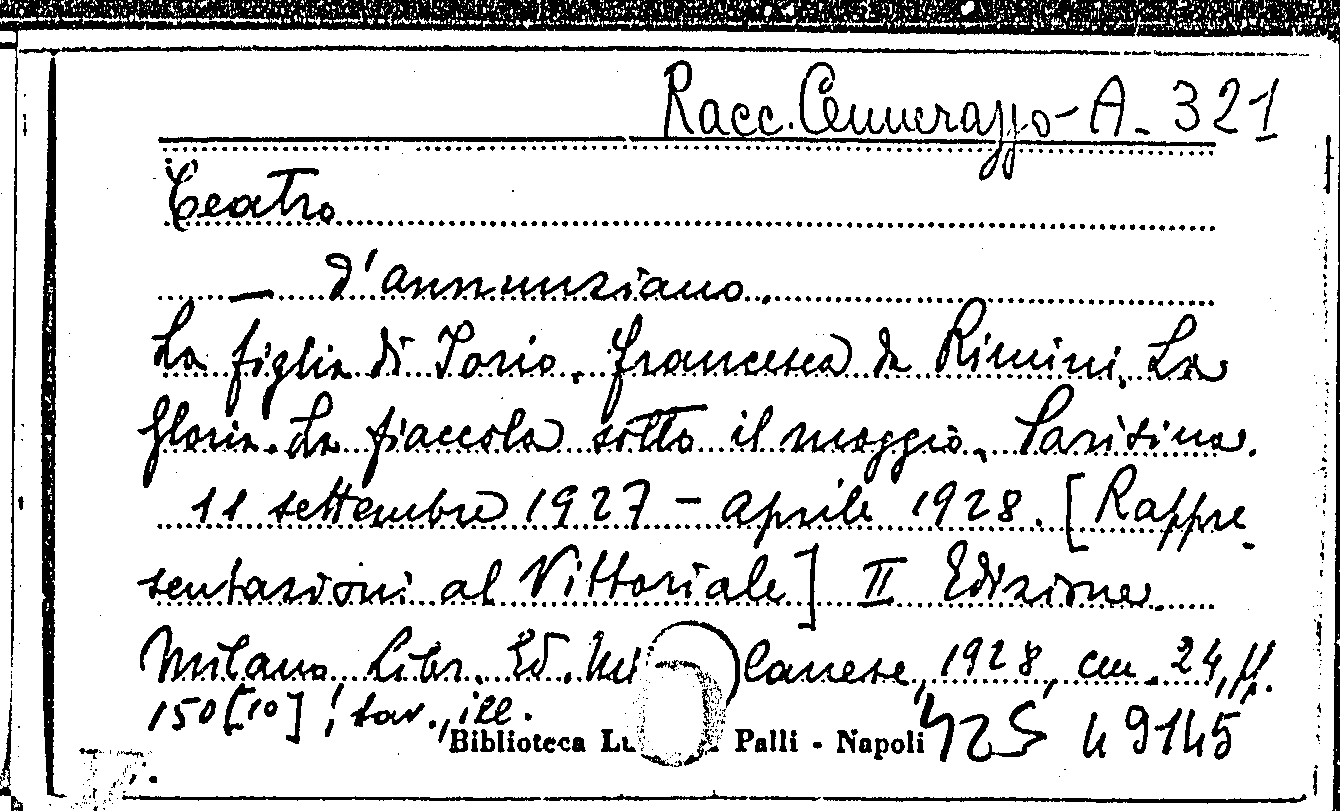 Racc. Cennerazzo - A. 321
Teatro
— d'annunziano.
La figlia di Iorio. Francesca da Rimini. La
Gloria. La fiaccola sotto il moggio. Parisina.
11 settembre 1927 - aprile 1928. [Rappre-
sentazioni al Vittoriale] II Edizione.
Milano. Libr. Ed. Mi lanese, 1928, cm. 24, pp.
150 [10], tav., ill.
Biblioteca Lu Palli - Napoli